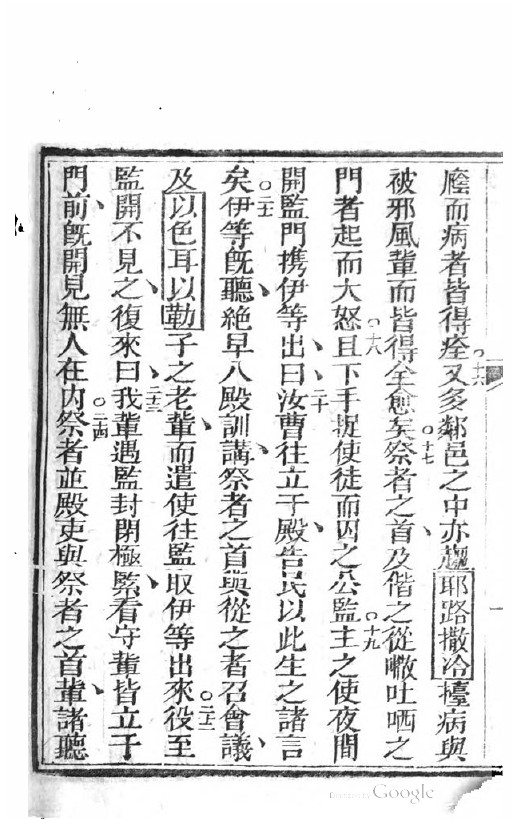 廕而病者皆得痊○十六又多鄰邑之中亦趨耶路撒冷檯病與
被邪風輩而皆得全愈矣○十七祭者之首、及偕之從嗷吐哂之
門者起而大怒○十八且下手捉使徒而囚之公監○十九主之使夜間
開監門携伊等出、曰、○二十汝曹往立于殿、告民以此生之諸言
矣○二十一伊等旣聽、絶早入殿訓講、祭者之首與從之者召會議、
及以色耳以勒子之老輩、而遣使往監取伊等出來○二十二役至
監開不見之、復來曰、○二十三我輩遇監封閉極緊、看守輩皆立于
門前、旣開見無人在内○二十四祭者並殿吏與祭者之首輩、諸聽
Google